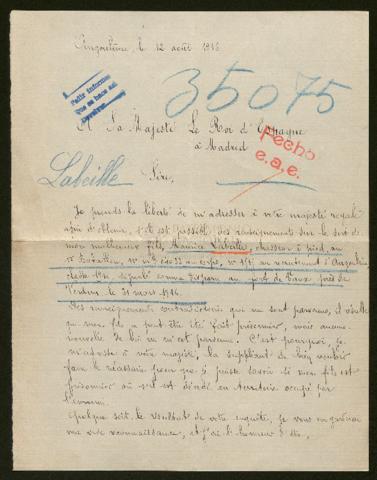 le 12 août 1916
Pedir informes
que se hace así
35075
A Sa Majesté Le Roi d'Espagne
à Madrid
Fecho
e.a.e.
Labeille
Sire,
Je prends la liberté de m'adresser à votre majesté royale
afin d'obtenir, s'il est possible, des renseignements sur le sort de
mon malheureux fils, Maurice Labeille, chasseur à pied, au
classe 1914, disparu au fort de Vaux, près de
Verdun, le 31 mars 1916.
Des renseignements contradictoires qui me sont parvenus, il résulte
que mon fils a peut être été fait prisonnier, mais aucune
nouvelle de lui ne m'est parvenue. C'est pourquoi, je
m'adresse à votre majesté, la suppliant de bien vouloir
faire le nécessaire pour que je puisse savoir si mon fils est
prisonnier ou s'il est décédé en territoire occupé par
l'ennemi.
Quelque soit le résultat de votre enquête, je vous en garderai
ma vive reconnaissance, et j'ai l'honneur d'être,